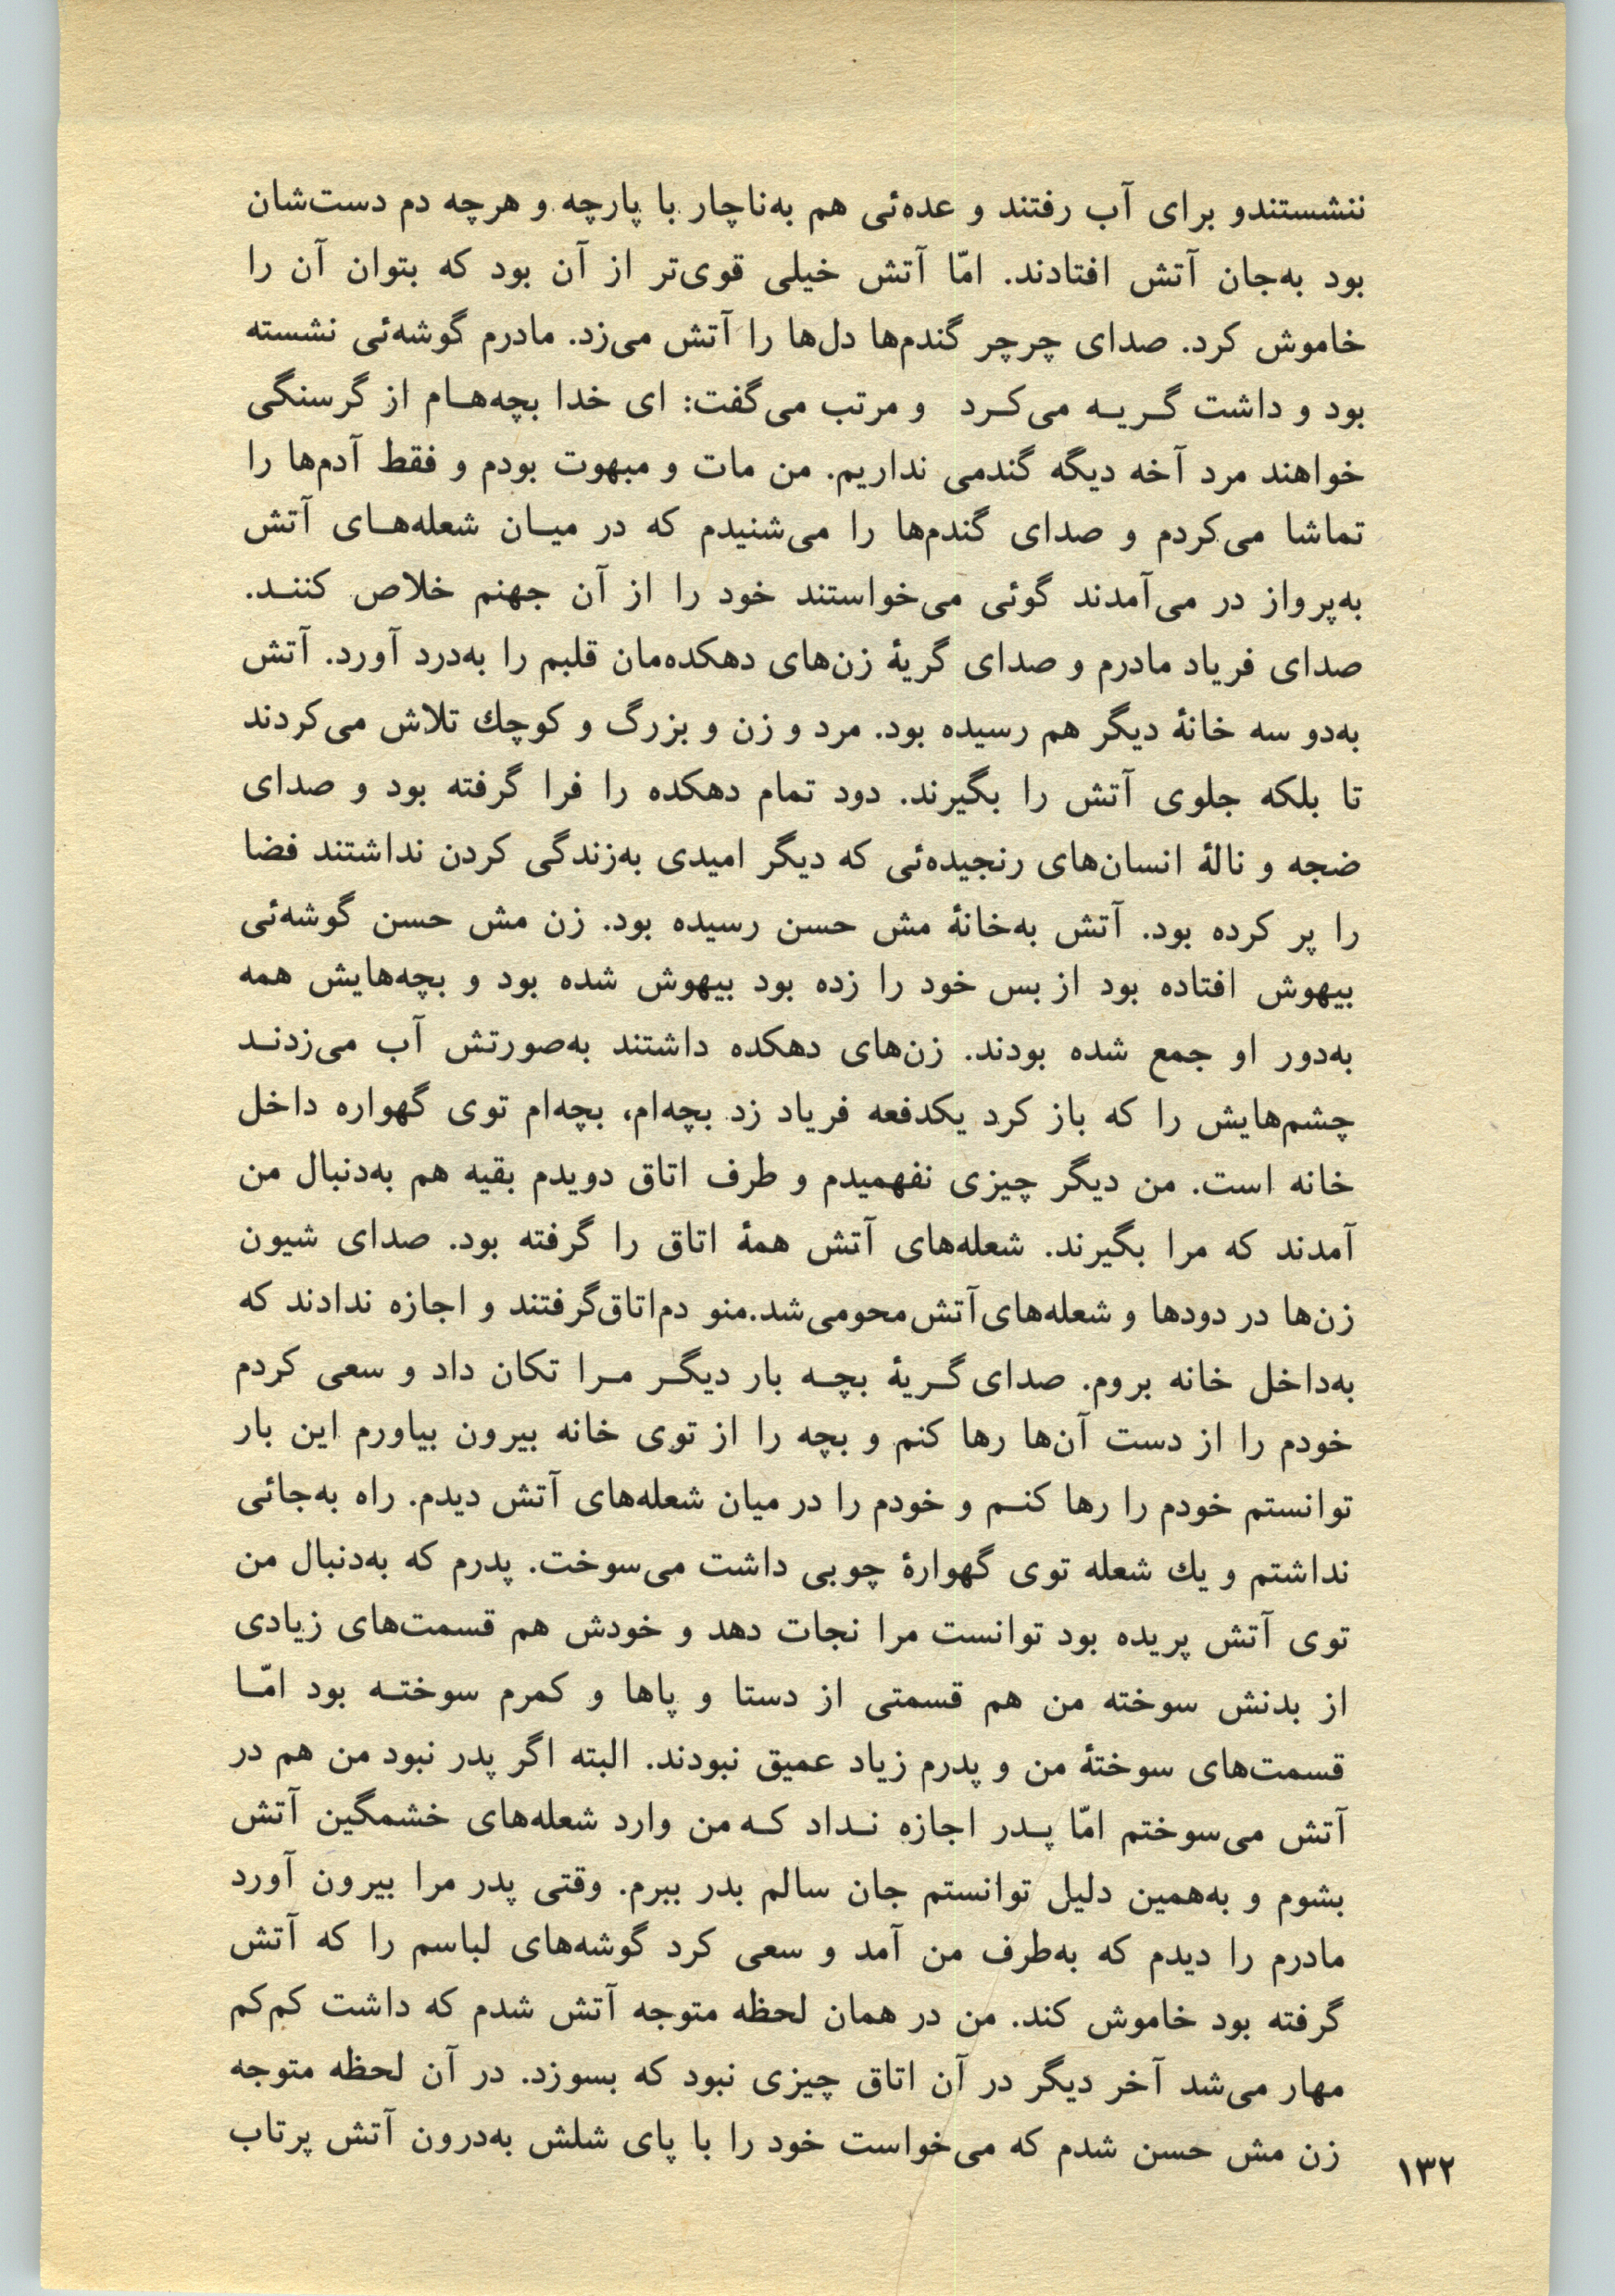 ننشستندو برای آب رفتند و عده‌ئی هم به‌ناچار با پارچه و هرچه دم دست‌شان
بود به‌جان آتش افتادند. امّا آتش خیلی قوی‌تر از آن بود که بتوان آن را
خاموش کرد. صدای چرچر گندم‌ها دل‌ها را آتش می‌زد. مادرم گوشه‌ئی نشسته
بود و داشت گـریـه می‌کـرد و مرتب می‌گفت: ای خدا بچه‌هـام از گرسنگی
خواهند مرد آخه دیگه گندمی نداریم. من مات و مبهوت بودم و فقط آدم‌ها را
تماشا می‌کردم و صدای گندم‌ها را می‌شنیدم که در میـان شعله‌هـای آتش
به‌پرواز در می‌آمدند گوئی می‌خواستند خود را از آن جهنم خلاص کننـد.
صدای فریاد مادرم و صدای گریهٔ زن‌های دهکده‌مان قلبم را به‌درد آورد. آتش
به‌دو سه خانهٔ دیگر هم رسیده بود. مرد و زن و بزرگ و کوچك تلاش می‌کردند
تا بلکه جلوی آتش را بگیرند. دود تمام دهکده را فرا گرفته بود و صدای
ضجه و نالهٔ انسان‌های رنجیده‌ئی که دیگر امیدی به‌زندگی کردن نداشتند فضا
را پر کرده بود. آتش به‌خانهٔ مش حسن رسیده بود. زن مش حسن گوشه‌ئی
بیهوش افتاده بود از بس خود را زده بود بیهوش شده بود و بچه‌هایش همه
به‌دور او جمع شده بودند. زن‌های دهکده داشتند به‌صورتش آب می‌زدنـد
چشم‌هایش را که باز کرد یکدفعه فریاد زد بچه‌ام، بچه‌ام توی گهواره داخل
خانه است. من دیگر چیزی نفهمیدم و طرف اتاق دویدم بقیه هم به‌دنبال من
آمدند که مرا بگیرند. شعله‌های آتش همهٔ اتاق را گرفته بود. صدای شیون
زن‌ها در دودها و شعله‌های‌آتش‌محومی‌شد.منو دم‌اتاق‌گرفتند و اجازه ندادند که
به‌داخل خانه بروم. صدای گـریهٔ بچـه بار دیگـر مـرا تکان داد و سعی کردم
خودم را از دست آن‌ها رها کنم و بچه را از توی خانه بیرون بیاورم این بار
توانستم خودم را رها کنـم و خودم را در میان شعله‌های آتش دیدم. راه به‌جائی
نداشتم و یك شعله توی گهوارهٔ چوبی داشت می‌سوخت. پدرم که به‌دنبال من
توی آتش پریده بود توانست مرا نجات دهد و خودش هم قسمت‌های زیادی
از بدنش سوخته من هم قسمتی از دستا و پاها و کمرم سوختـه بود امّـا
قسمت‌های سوختهٔ من و پدرم زیاد عمیق نبودند. البته اگر پدر نبود من هم در
آتش می‌سوختم امّا پـدر اجازه نـداد کـه من وارد شعله‌های خشمگین آتش
بشوم و به‌همین دلیل توانستم جان سالم بدر ببرم. وقتی پدر مرا بیرون آورد
مادرم را دیدم که به‌طرف من آمد و سعی کرد گوشه‌های لباسم را که آتش
گرفته بود خاموش کند. من در همان لحظه متوجه آتش شدم که داشت کم‌کم
مهار می‌شد آخر دیگر در آن اتاق چیزی نبود که بسوزد. در آن لحظه متوجه
زن مش حسن شدم که می‌خواست خود را با پای شلش به‌درون آتش پرتاب
۱۳۲